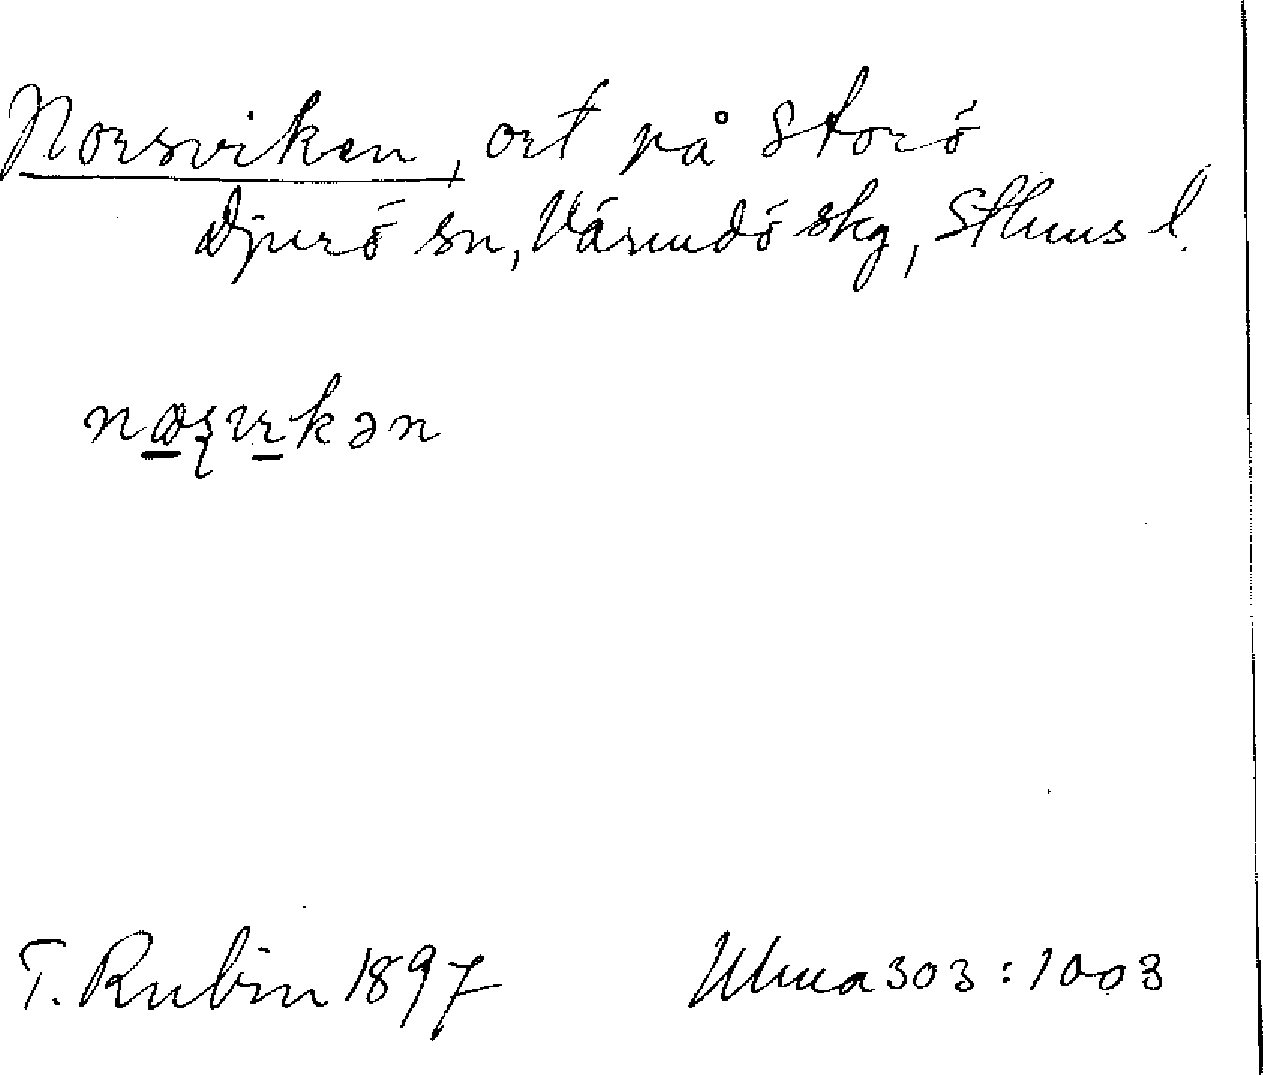 Norsviken, ort på Storö
Djurö sn, Värmdö skg, Sthms l.
næʂvikən
T. Rubin 1897
Ulma 303:1003